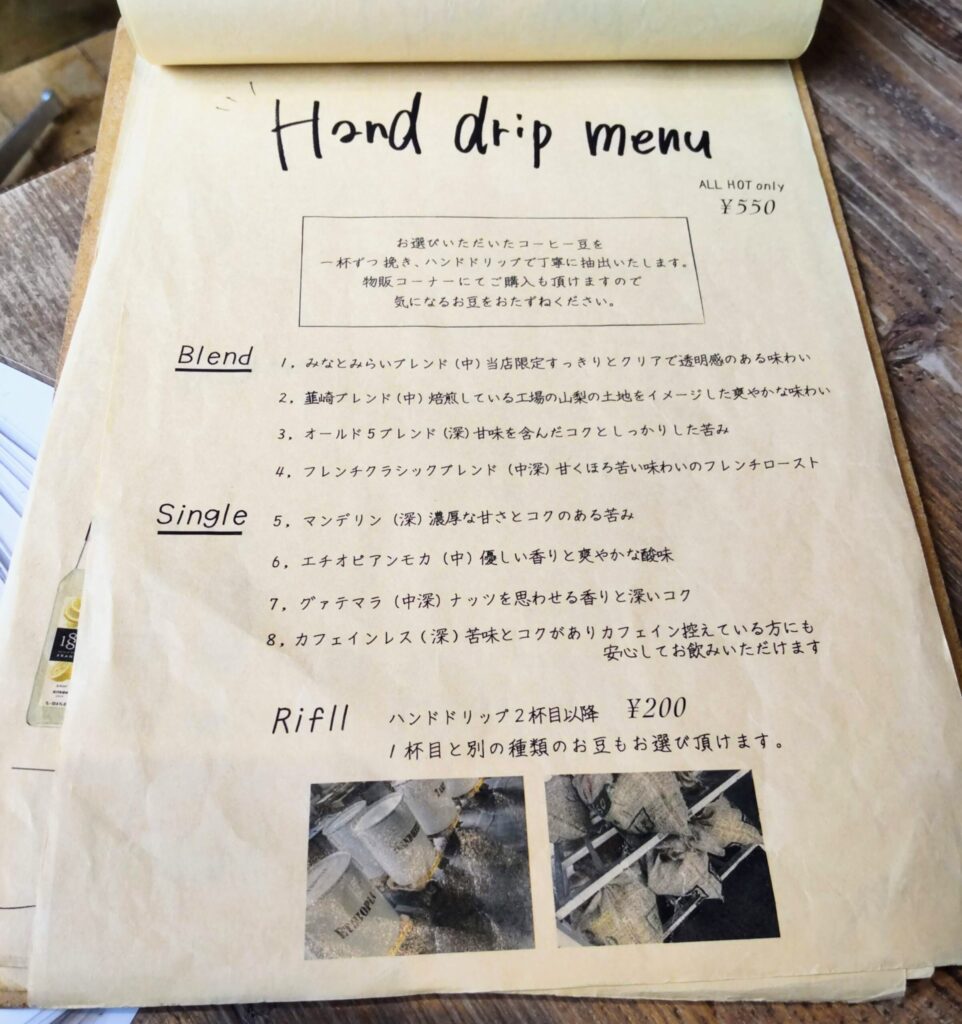 Hand drip menu
ALL HOT only
¥550
お選びいただいたコーヒー豆を
一杯ずつ挽き、ハンドドリップで丁寧に抽出いたします。
物販コーナーにてご購入も頂けますので
気になるお豆をおたずねください。
Blend
1, みなとみらいブレンド (中) 当店限定すっきりとクリアで透明感のある味わい
2, 韮崎ブレンド (中) 焙煎している工場の山梨の土地をイメージした爽やかな味わい
3, オールド5ブレンド (深) 甘味を含んだコクとしっかりした苦み
4, フレンチクラシックブレンド (中深) 甘くほろ苦い味わいのフレンチロースト
Single
5, マンデリン (深) 濃厚な甘さとコクのある苦み
6, エチオピアンモカ (中) 優しい香りと爽やかな酸味
7, グァテマラ (中深) ナッツを思わせる香りと深いコク
8, カフェインレス (深) 苦味とコクがありカフェイン控えている方にも
安心してお飲みいただけます
Rifll ハンドドリップ2杯目以降 ¥200
1杯目と別の種類のお豆もお選び頂けます。